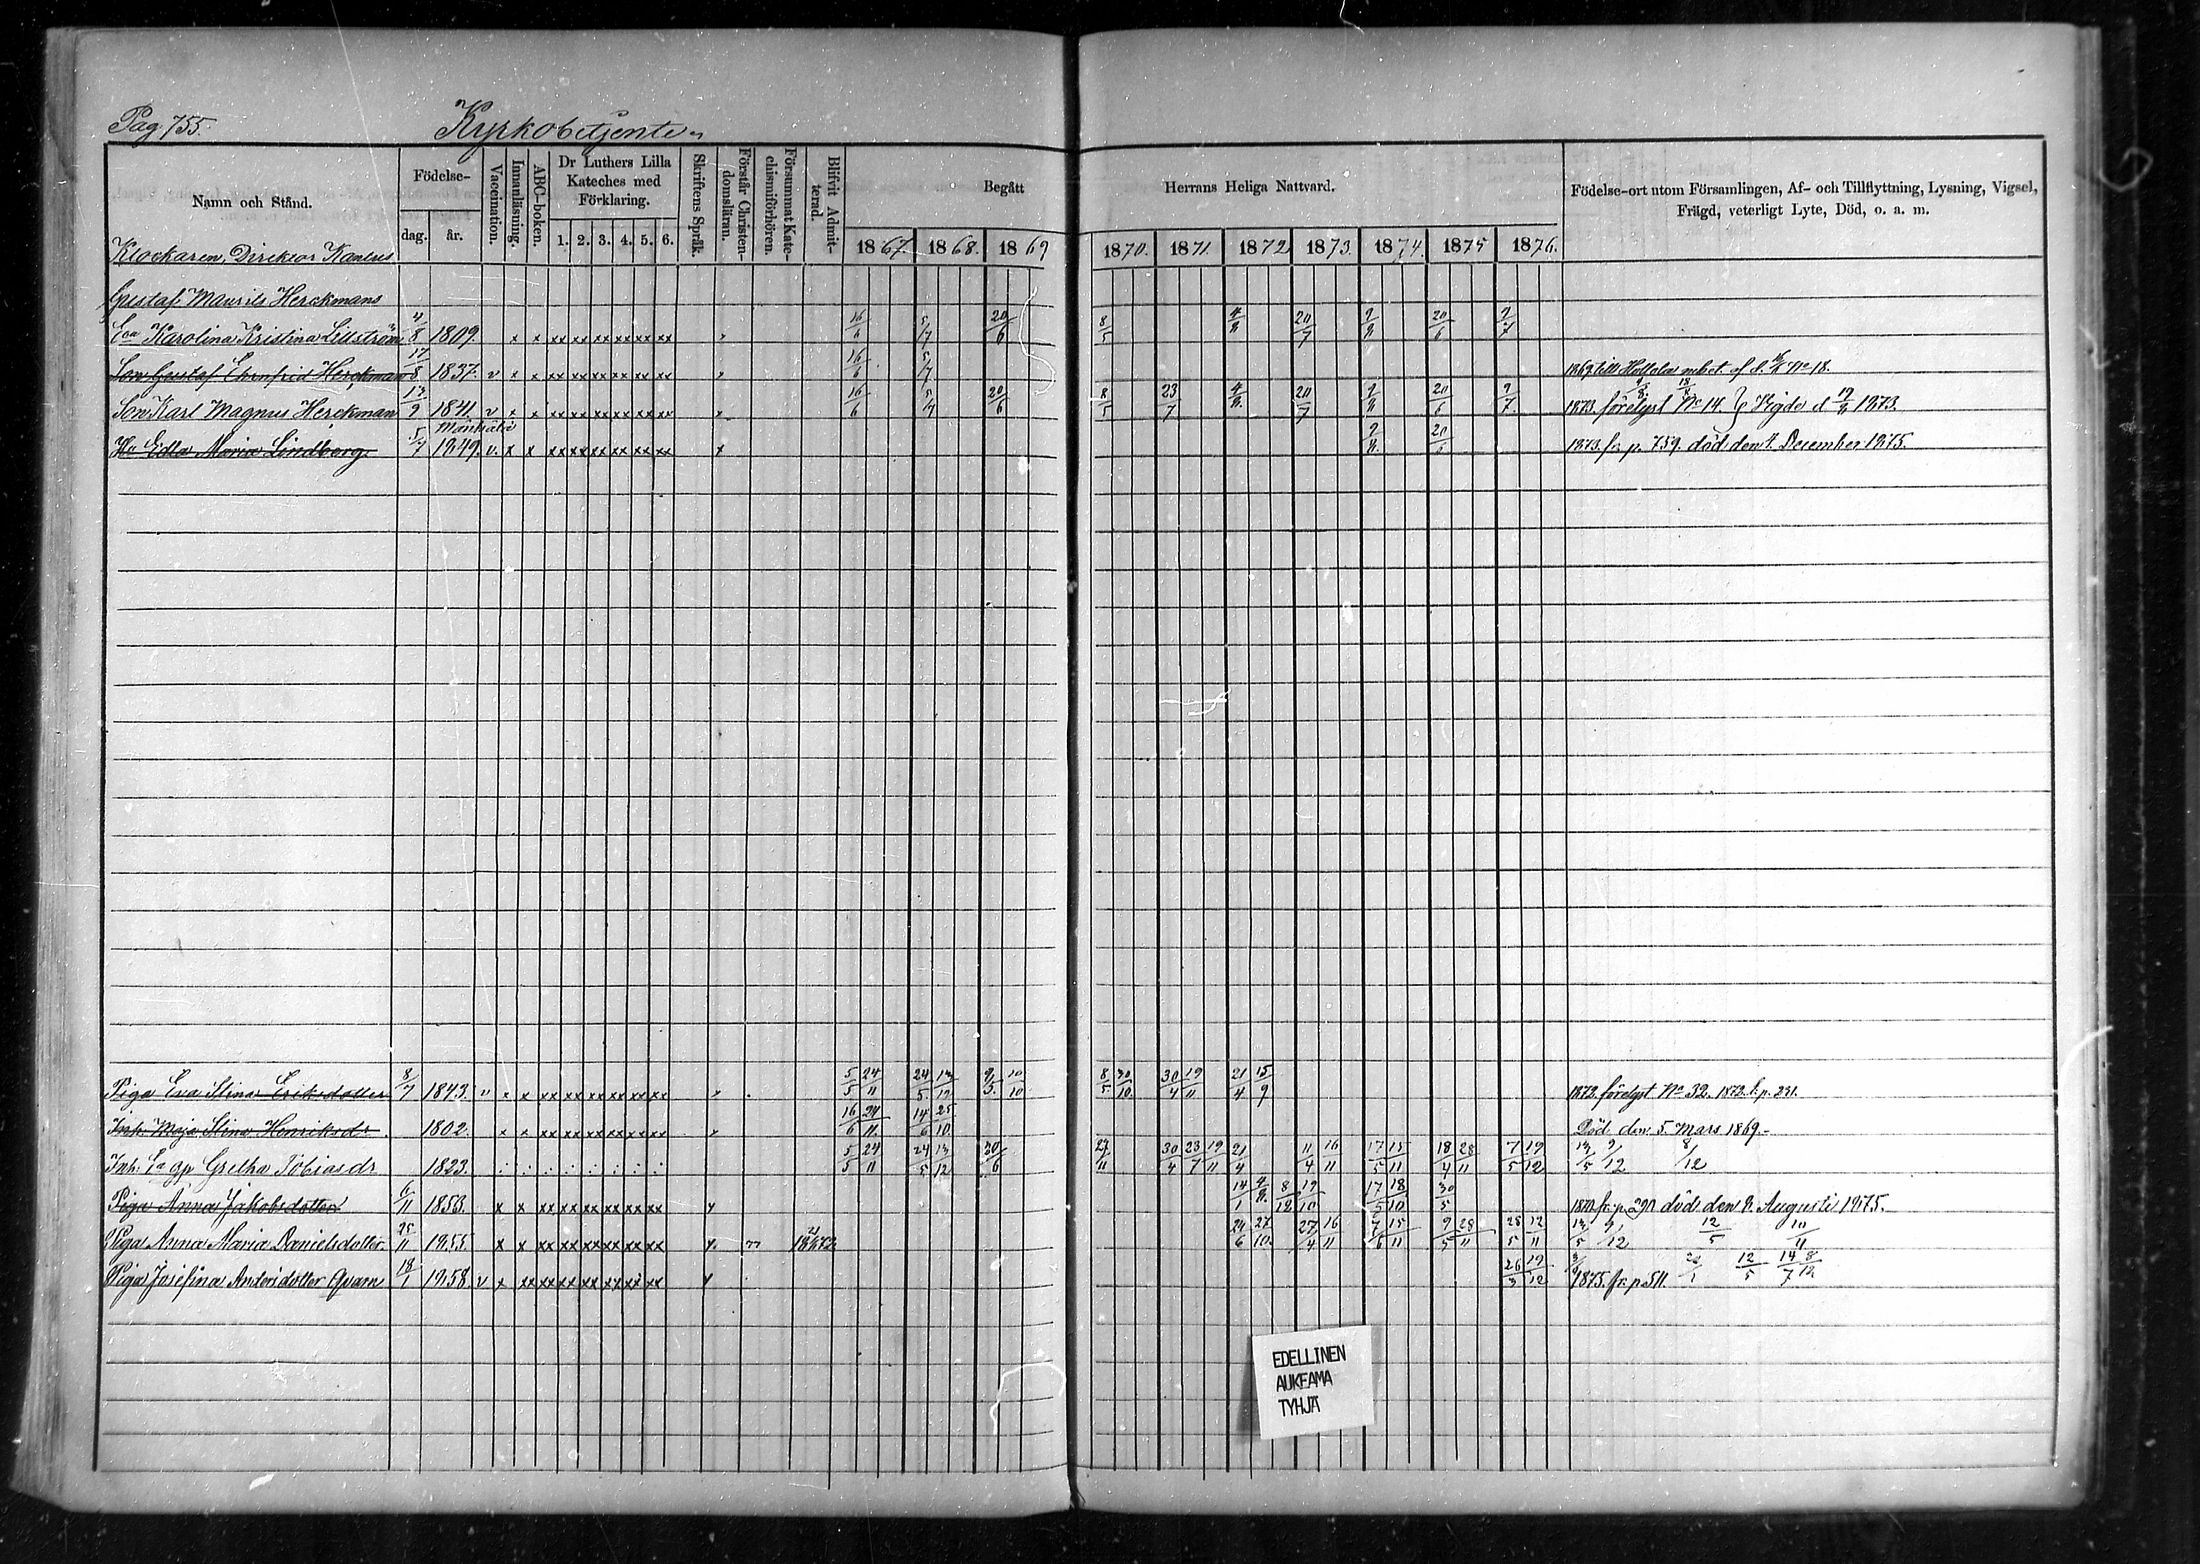 Pag 755.
Kyrkobetjente
Namn och Stånd.
Födelse-
dag. år.
Vaccination.
Innanläsning.
ABC-boken.
Dr Luthers Lilla
Kateches med
Förklaring.
1. 2. 3. 4. 5. 6.
Skriftens Språk.
Förstår Christen-
domsläran.
Försummat Kate-
chismiförhören.
Blifvit Admit-
terad.
Begått
Herrans Heliga Nattvard.
1867. 1868. 1869
1870. 1871. 1872 1873. 1874. 1875 1876.
Födelse-ort utom Församlingen, Af- och Tillflyttning, Lysning, Vigsel,
Frägd, veterligt Lyte, Död, o. a. m.
Klockaren, Direktor Kantus
Gustaf Maurits Herckmans
Karolina Kristina Littström 4/8 1809. x x xx xx xx xx xx xx 16/6 5/7 20/6 8/5 4/8 20/7 2/8 20/6 2/7
Son Gustaf Ehrnfrid Herckman 17/8 1837. v x x xx xx xx xx xx xx 16/6 5/7 1869 till Hollola
Son Karl Magnus Herckman 1841. v x x xx xx xx xx xx xx 16/6 5/7 20/6 8/5 23/7 4/8. 20/7 2/8 20/6 2/7. 1873. förelyst No 14. 1873.
Edla Maria Lindberg 5/7 1849. v. x x xx xx xx xx xx xx x 2/8. 20/6 1873. fr. p. 759. död den 4 December 1875.
Piga Eva Stina Eriksdotter 8/7 1843. v x x xx xx xx xx xx xx 5/5 24/11 24/5 13/12 10/10 8/5 30/10. 30/4 19/11 21/4 15/9 1872. förelyst No 32. 1872. f. p. 231.
Inh. Maja Stina Henriksdr 1802. x x xx xx xx xx xx xx 16/6 24/11 14/6 25/10 Död den 5 Mars 1869.-
Inh. Gretha Tobiasdr 1823. 5/5 24/11 24/5 13/12 20/6 27/11 30/4 23/7 19/11 21/4 11/4 16/11 17/5 15/11 18/4 28/11 7/5 19/12 13/5 9/12 8/12
Piga Anna Jakobsdotter 6/11 1853. x x xx xx xx xx xx xx 14/1 4/8. 8/12 19/10 17/5 18/10 30/5 1870. fr. p. 290 död den 8. Augusti 1875.
Piga Anna Maria Danielsdotter. 25/11 1855. x x xx xx xx xx xx xx 1872. 24/6 27/10. 27/4 16/11 7/6 15/11 9/5 28/11 28/5 12/11 13/5 9/12 12/5 10/11
Piga Josefina Andersdotter Qvarn 18/1 1858. v x xx xx xx xx xx xx 26/3 19/12 1875. fr. p. 511. 12/5 14/7 8/12
EDELLINEN
AUKEAMA
TYHJÄ